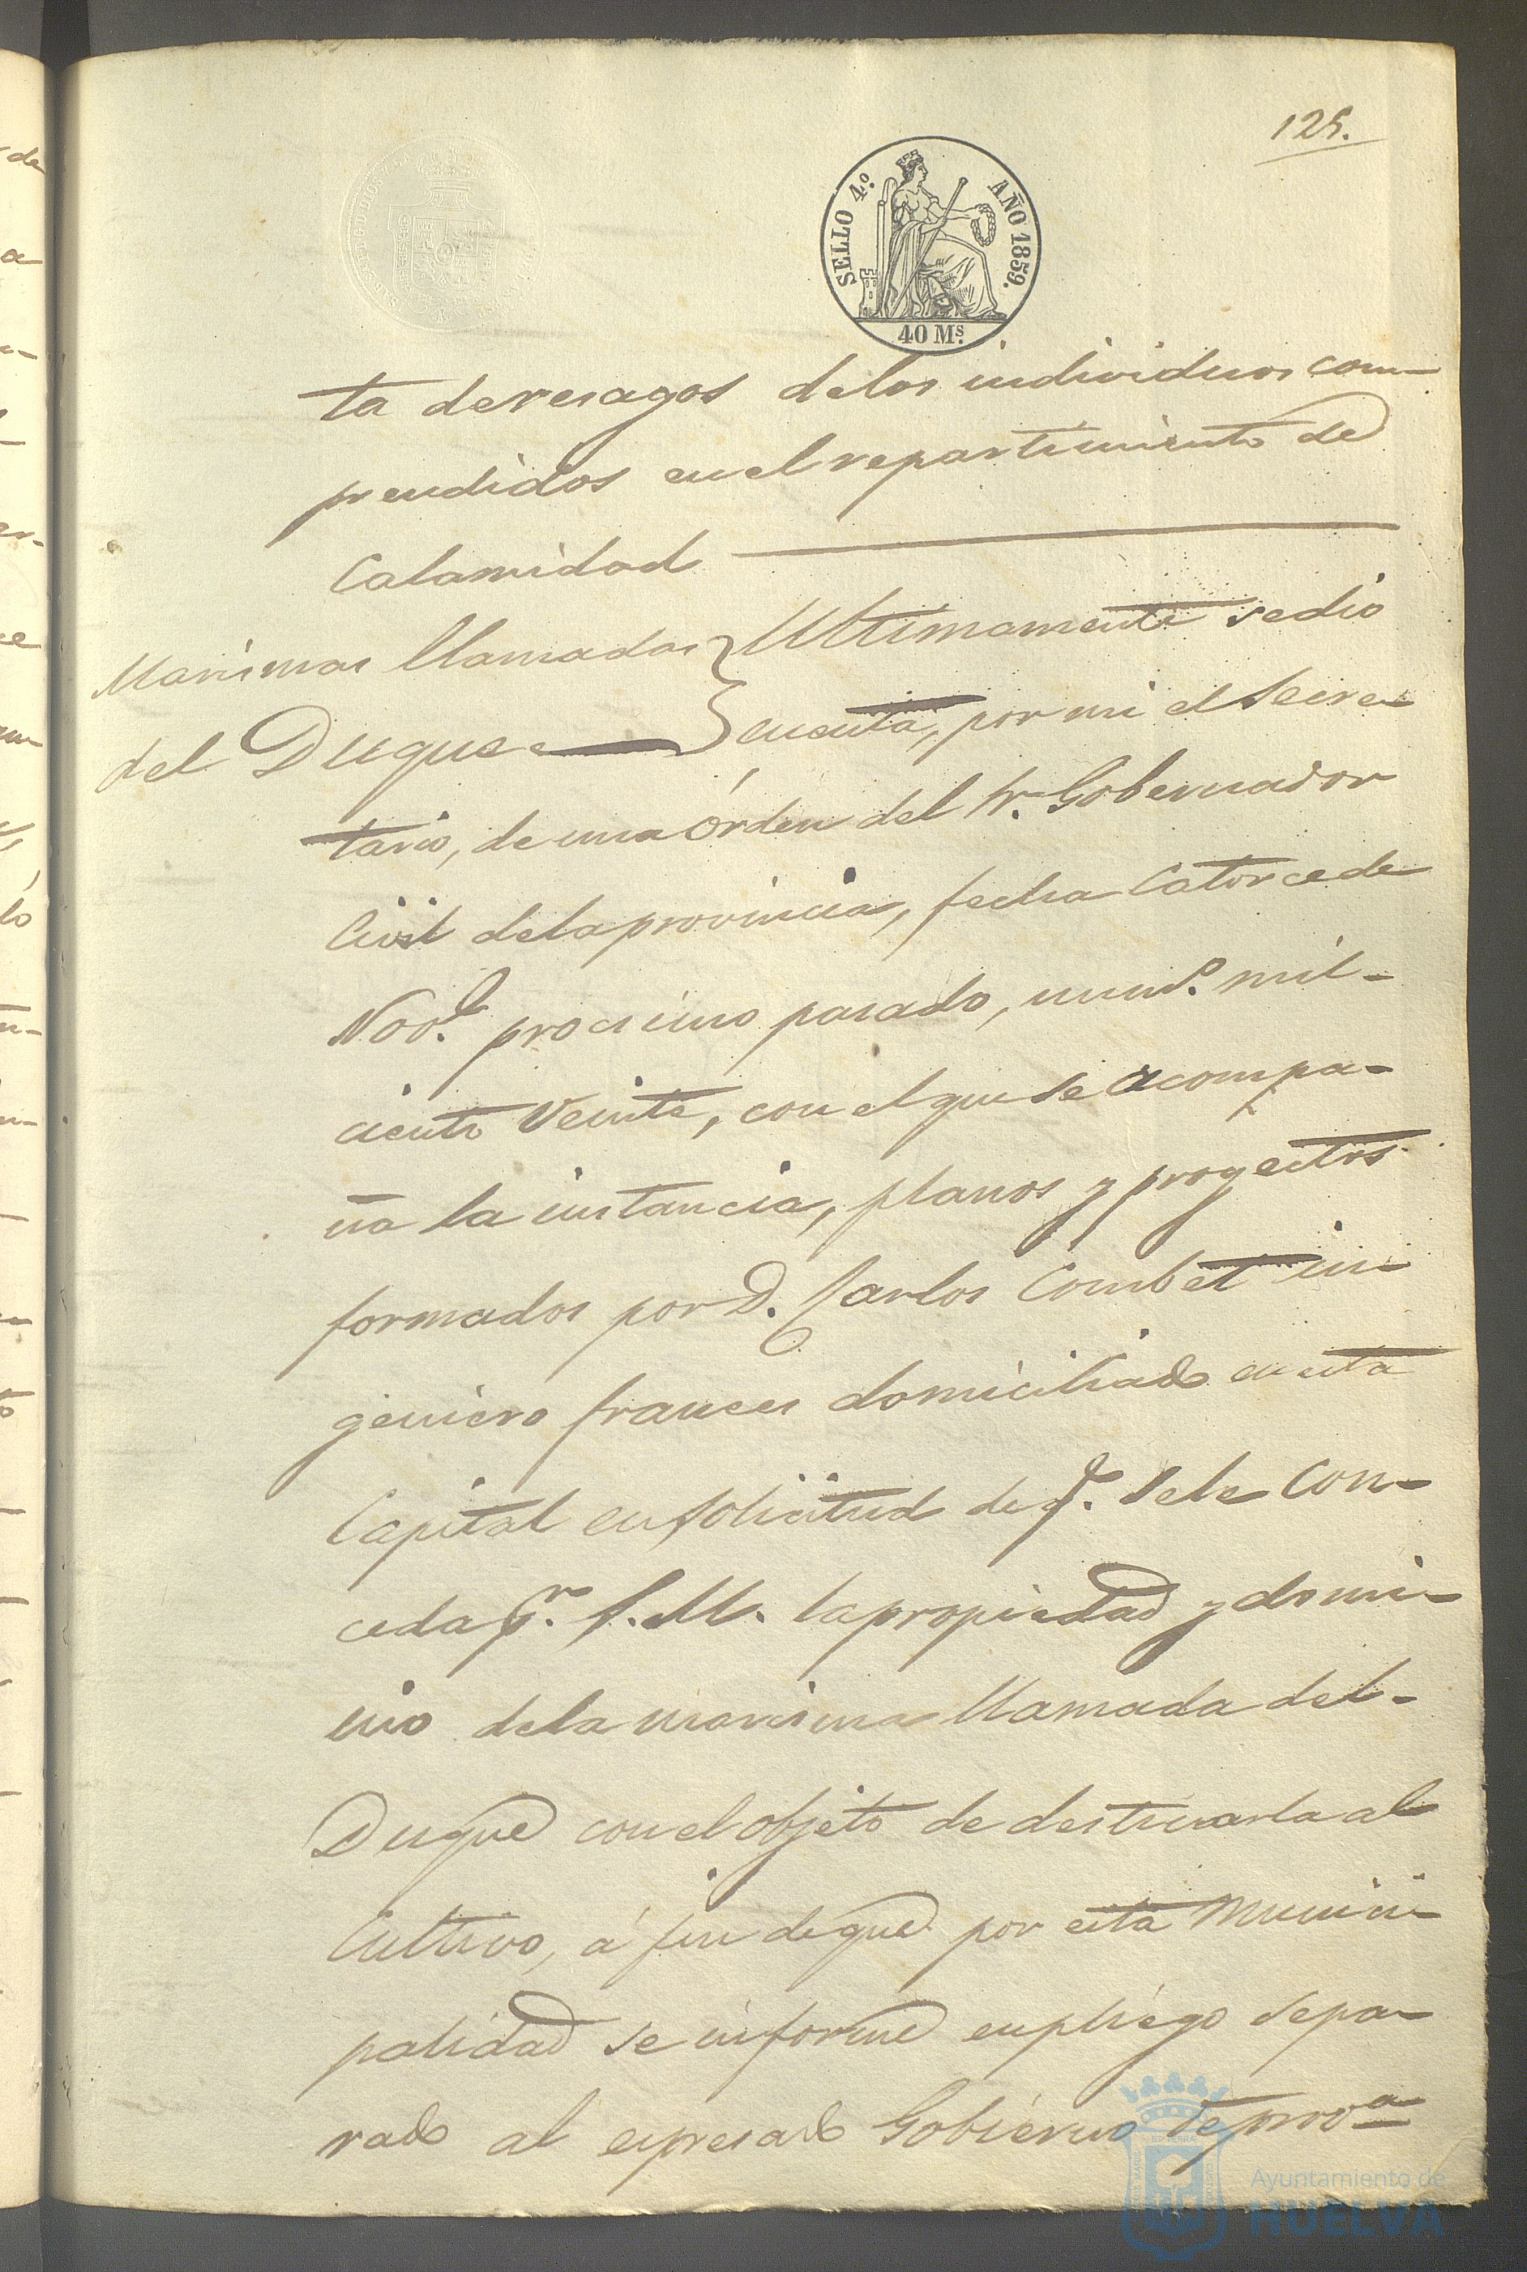 125.
SELLO 4º. AÑO 1859.
40 Ms.
ta de resagos de los individuos com-
prendidos en el repartimiento de
Calamidad
Marismas llamadas
del Duque
Ultimamente se dio
cuenta, por mi el Secre-
tario, de una órden del Sr. Gobernador
Civil de la provincia, fecha Catorce de
Nove. procsimo pasado, numo. mil-
ciento Veinte, con el que se acompa-
ña la instancia, planos y proyectos
formados por D. Carlos Combet in-
geniero frances domiciliado en esta
Capital en solicitud de qe. se le con-
ceda pr. S. M. la propiedad y domi-
nio de la marisma llamada del-
Duque con el objeto de destinarla al
Cultivo, á fin de que por esta Munici-
palidad se informe en pliego sepa-
rado al espresado Gobierno de prova
Ayuntamiento de
HUELVA